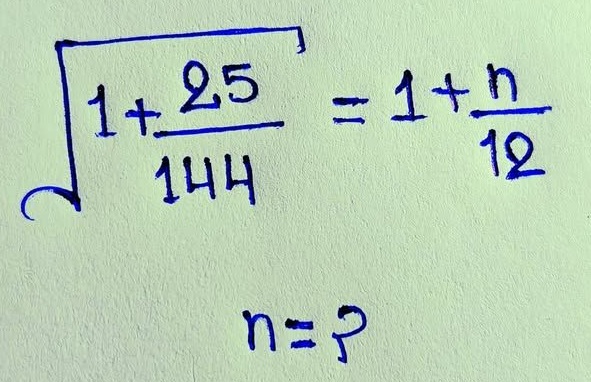 √(1+25/144) = 1+n/12
n=?